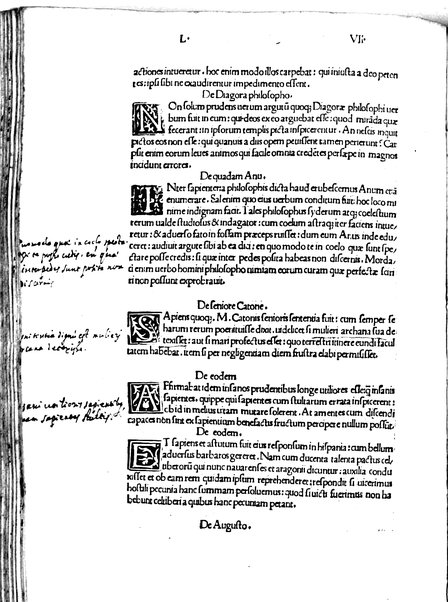 L. VII.
actiones intueretur. hoc enim modo illos carpebat: qui iniusta a deo peten
tes: ipsi sibi ne exaudirentur impedimento essent.
De Diagora philosopho.
NOn solum prudens uerum argutũ quoq; Diagoræ philosophi uer
bum fuit in eum: qui deos ex eo arguebat esse: quod mirãda quæ
fecerant: in ipsorum templis picta inspicerentur. An nescis inquit
pictos eos non esse: qui quanuis a diis opem petiissent tamen perierunt? Car
psit enim eorum leues animos qui facile omnia credẽtes persæpe in magnos
incidunt errores.
De quadam Anu.
INter sapientera philosophis dicta haud erubescemus Anum etiã
enumerare. Sal enim quo eius uerbum conditum fuit: hoc loco mi
nime indignam facit. Tales philosophus syderum atq; coelestium
rerum ualde studiosus & indagator: cum coelum astraq; iter faciens intue
retur: & aduerso fato in fossam præceps ruisset: dum eum Anus inde edu
ceret: audiuit argute sibi ab ea dici: en quo modo te in coelo quæ sunt spe
ctare posse credis: si quæ inter pedes posita habeas non discernis. Morda
ci enim uerbo homini philosopho nimiam eorum curam quæ perfectæ sciri
non possunt exprobrauit.
De seniore Catone.
SApiens quoq; M. Catonis senioris sententia fuit: cum semper se
harum rerum poenituisse dixit. uidelicet si mulieri archana sua de
texisset: aut si mari profectus esset: quo terrestri itinere eundi facul
tatem habebat. item si per negligentiam diem frustra elabi permisisset.
De eodem
AFfirmabat idem insanos prudentibus longe utiliores esse: q insanis
sapientes, quippe qui sapientes cum stultarum errata inspicerent:
ob id in melius uitam mutare solerent. At amentes cum discendi
capaces non sint ex sapientium benefactis fructum percipere nullum possẽt.
De eodem.
ET sapiens et astutum fuit eius responsum in hispania: cum bellum
aduersus barbaros gereret. Nam cum ducenta talenta pactus cel
tiberorũ qui nunc nauarenses et aragonii dicuntur: auxilia condu
xisset et ob eam rem quidam ipsum reprehenderet: respondit si uicerimus
hostili pecunia hanc summam persoluemus: quod si uicti fuerimus non ha
bebunt celtiberi a quibus hanc pecuniam petant.
De Augusto.